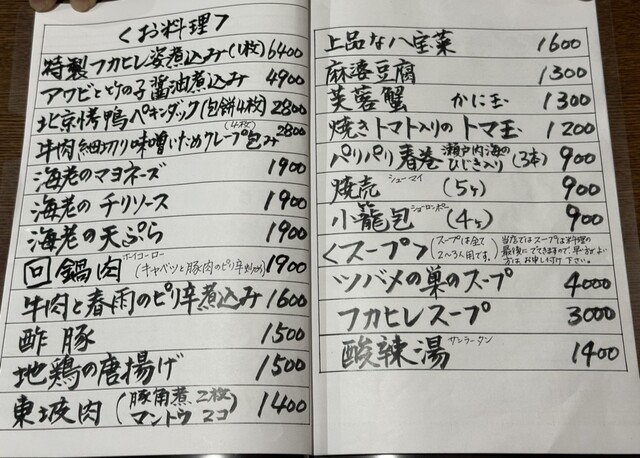 ＜お料理＞
特製フカヒレ姿煮込み(1枚) 6400
アワビと竹の子醤油煮込み 4900
北京烤鴨ペキンダック(包餅4枚) 2800
牛肉細切り味噌いためクレープ包み(4枚) 2800
海老のマヨネーズ 1900
海老のチリソース 1900
海老の天ぷら 1900
回鍋肉 ホイコーロー (キャベツと豚肉のピリ辛炒め) 1900
牛肉と春雨のピリ辛煮込み 1600
酢豚 1500
地鶏の唐揚げ 1500
東坡肉 (豚角煮2枚 マントウ2コ) 1400
上品な八宝菜 1600
麻婆豆腐 1300
芙蓉蟹 かに玉 1300
焼きトマト入りのトマ玉 1200
パリパリ春巻 瀬戸内海のひじき入り (3本) 900
焼売 シューマイ (5ヶ) 900
小籠包 ショーロンポー (4ヶ) 900
＜スープ＞ (スープは全て2〜3人用です。) 当店ではスープは料理の最後にでてきますので、早い方がよい方はお申し付け下さい。
ツバメの巣のスープ 4000
フカヒレスープ 3000
酸辣湯 サンラータン 1400